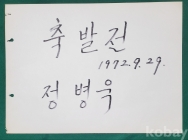 축 발전
1972. 9. 29.
정병욱
kobay